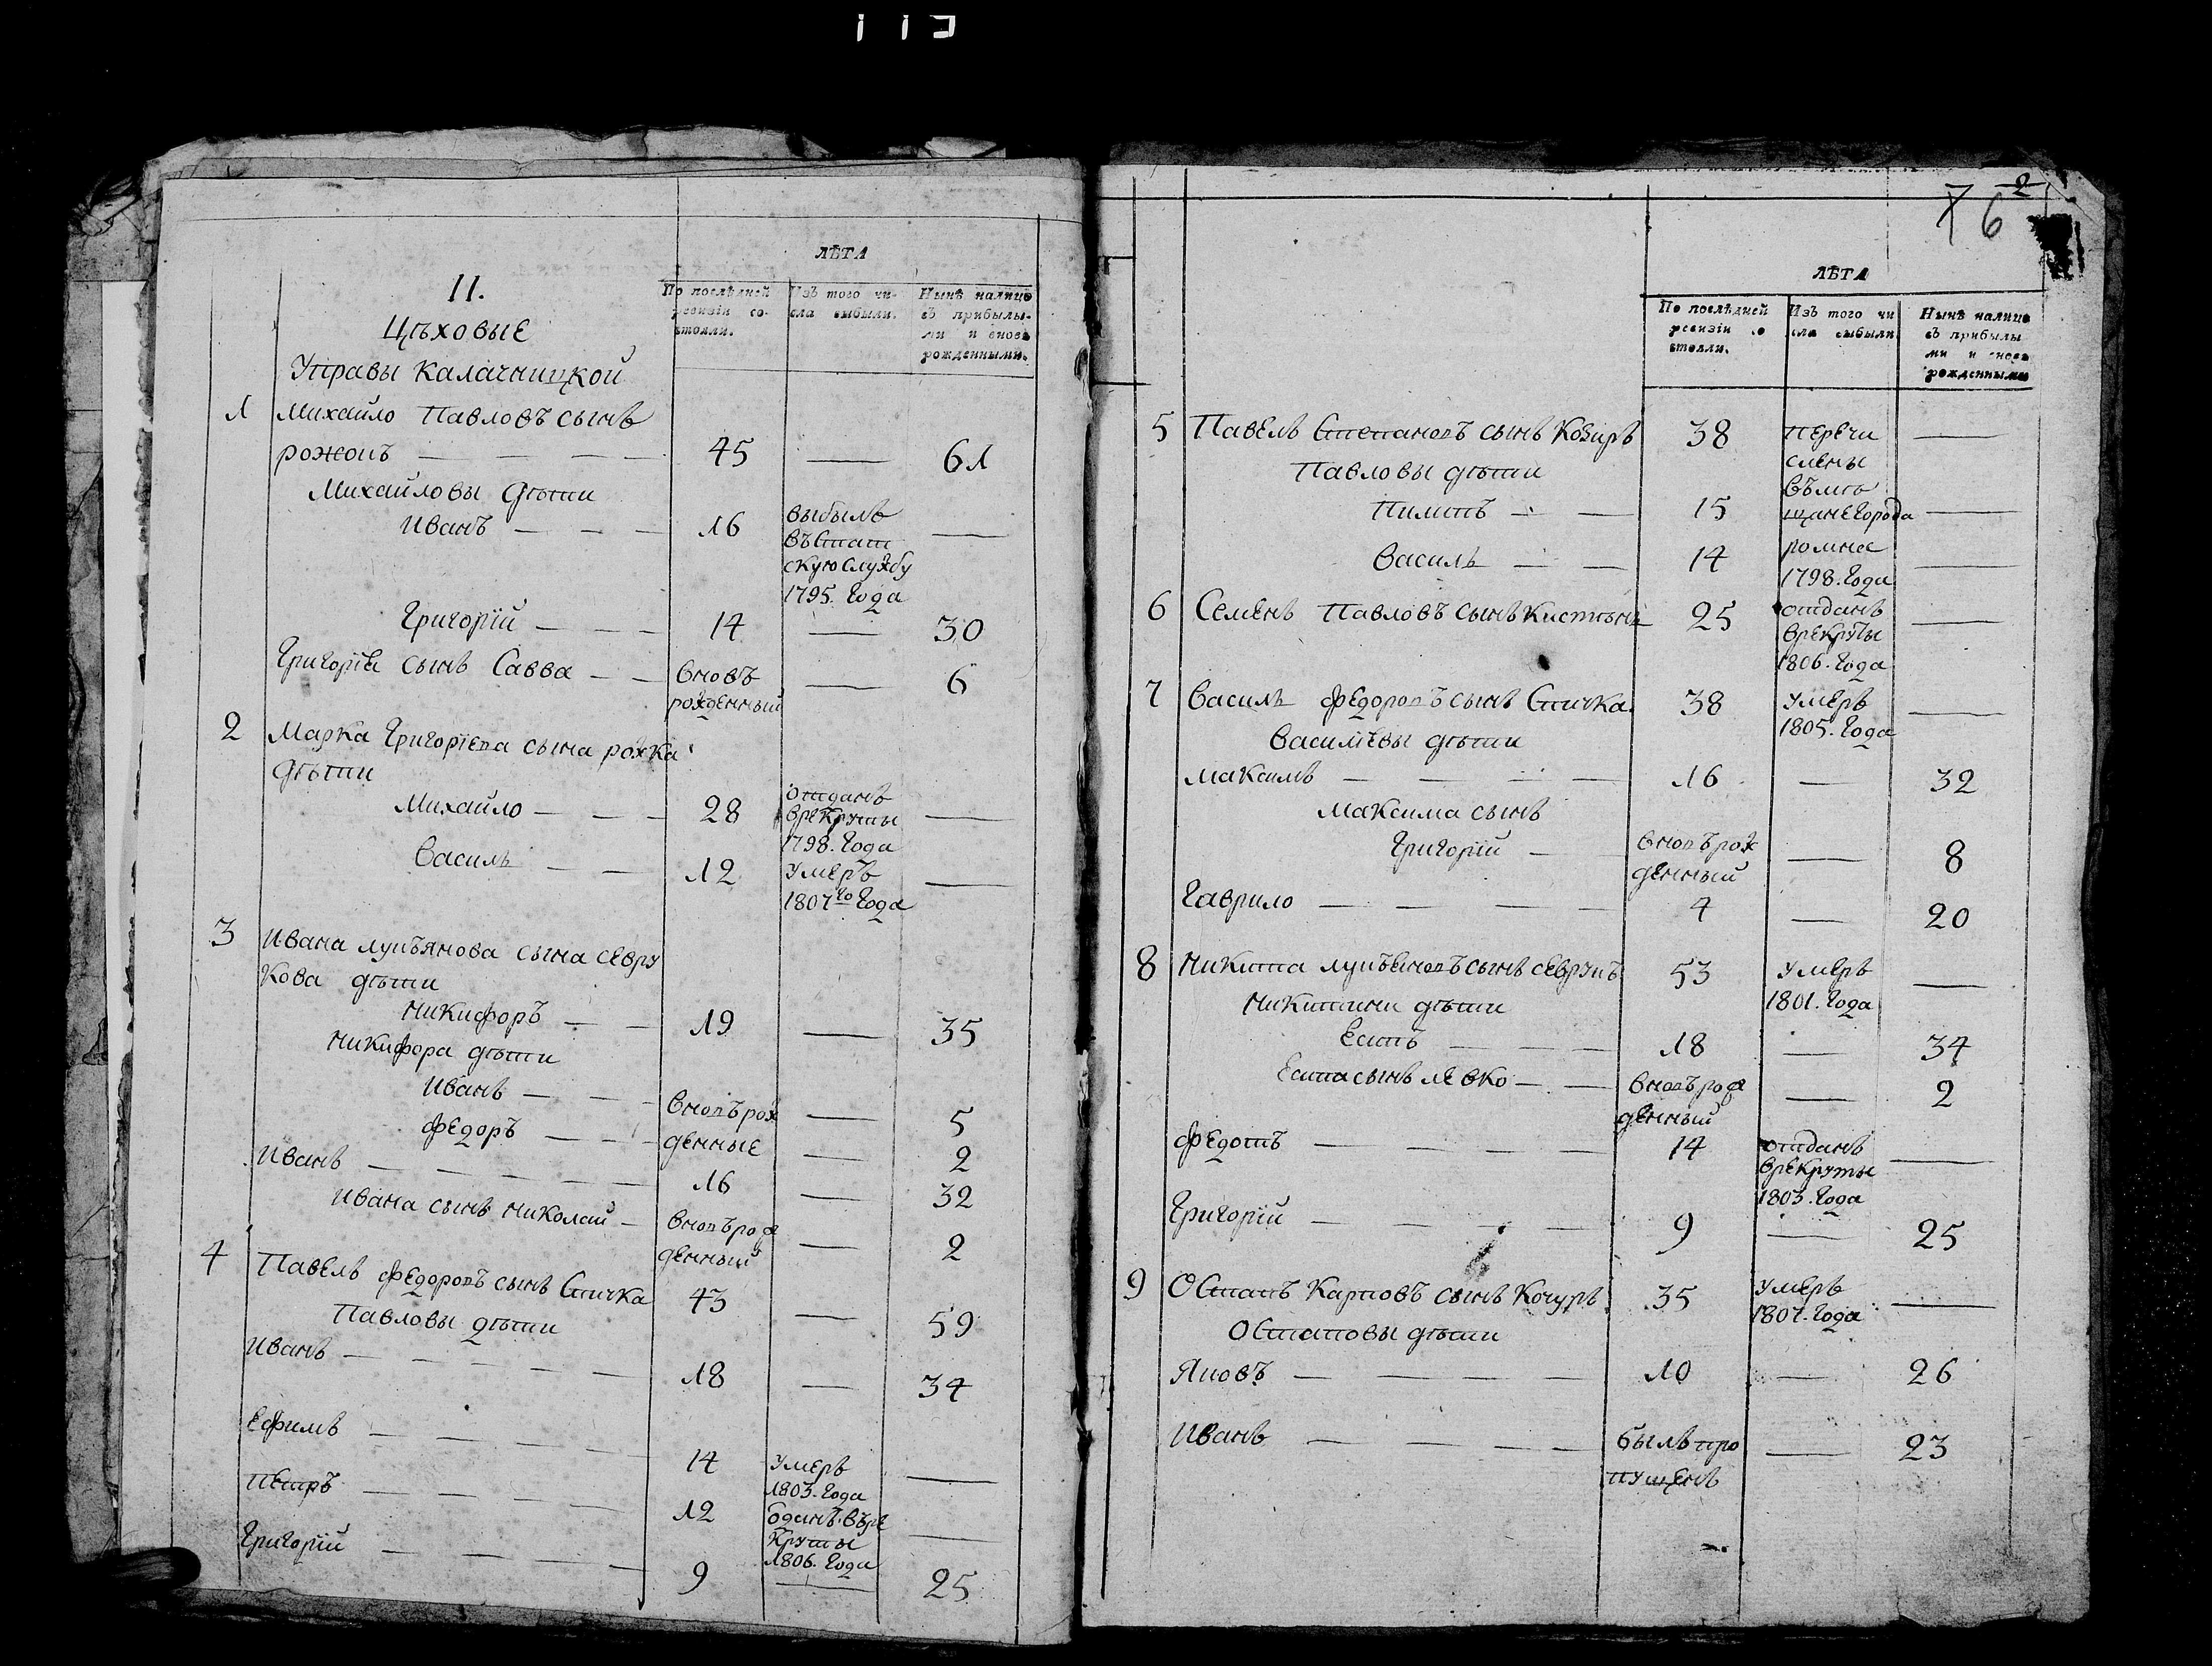 113
II.
Цѣховые
Управы калачницкой
ЛѢТА
По послѣдней ревизіи состояли.
Изъ того числа выбыли.
Нынѣ налицо съ прибылыми и вновь рожденными.
1 Михайло Павловъ сынъ
рожокъ — — — 45 — 61
Михайловы дѣти
Иванъ — — — 16 выбылъ —
въ Стат
скую службу
1795. Года
Григорїй — — — 14 — 30
Григорїя сынъ Савва — — вновъ — 6
рожденный
2 Марка Григорїева сына рожка
дѣти
Михайло — — — 28 отданъ —
врекруты
1798. Года
Василь — — 12 умеръ —
1807го Года
3 Ивана лукъянова сына севрю
кова дѣти
Никифоръ — — 19 — 35
Никифора дѣти
Иванъ — — — вновърож — 5
Федоръ — — — денные — 2
Иванъ — — — — — 16 — 32
Ивана сынъ Николай — вновърож — 2
денный
4 Павелъ Федоровъ сынъ Спичка 43 — 59
Павловы дѣти
Иванъ — — — — — 18 — 34
Ефимъ — — — — 14 умеръ —
1803. Года
Петръ — — — — 12 одань въре —
круты
1806. Года
Григорїй — — — — 9 — 25
7 6 2
ЛѢТА
По послѣдней ревизіи состояли.
Изъ того числа выбыли
Нынѣ налицо съ прибылыми и вновь рожденными
5 Павелъ Степановъ сынъ Козиръ 38 перечи —
слены
Павловы дѣти
въмѣ
Пилипъ — — 15 щане Города —
Василь — — 14 ромнос —
1798. Года
6 Семенъ Павловъ сынъ Кистѣнь 25 отданъ —
врекруты
1806. Года
7 Василь Федоровъ сынъ Спичка 38 умеръ —
1805. Года
Василїевы дѣти
Максимъ — — — — 16 — 32
Максима сынъ
Григорїй — вновърож — 8
денный
Гаврило — — — — 4 — 20
8 Никита лукъеновъ сынъ севрукъ 53 умеръ —
1801. Года
Никитины дѣти
Есипъ — — — 18 — 34
Есипа сынъ левко — — вновърож — 2
денный
Федотъ — — — — 14 отданъ —
врекруты
1803. Года
Григорїй — — — — 9 — 25
9 Остапъ Карповъ сынъ Кочуръ 35 умеръ —
1807. Года
Остаповы дѣти
Яковъ — — — — 10 — 26
Иванъ — — — — былъ про — 23
пущенъ